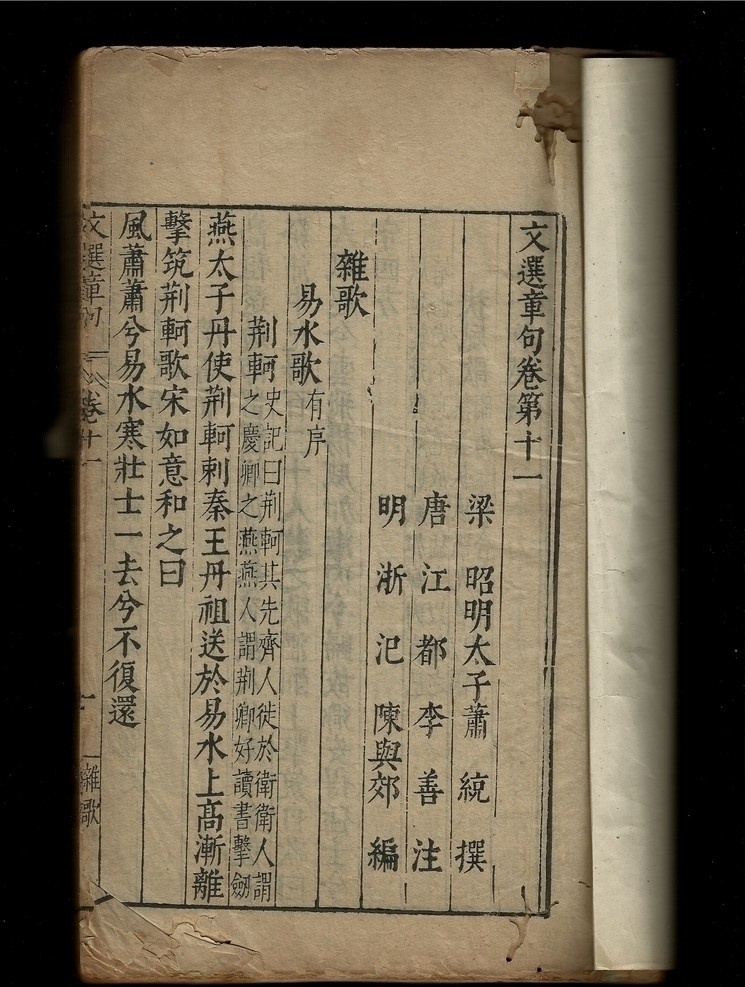 文選章句卷第十一
梁 昭明太子蕭 統 撰
唐 江 都 李 善 注
明 浙 汜 陳與郊 編
雜歌
易水歌有序
荆軻史記曰荆軻其先齊人徙於衛衛人謂
之慶卿之燕燕人謂荆卿好讀書擊劒
燕太子丹使荆軻刺秦王丹祖送於易水上高漸離
擊筑荆軻歌宋如意和之曰
風蕭蕭兮易水寒壯士一去兮不復還
文選章句 卷十一 一 雜歌